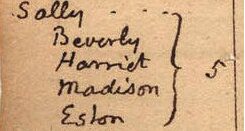 Sally . . . .
Beverly
Harriet
Madison } 5
Eston